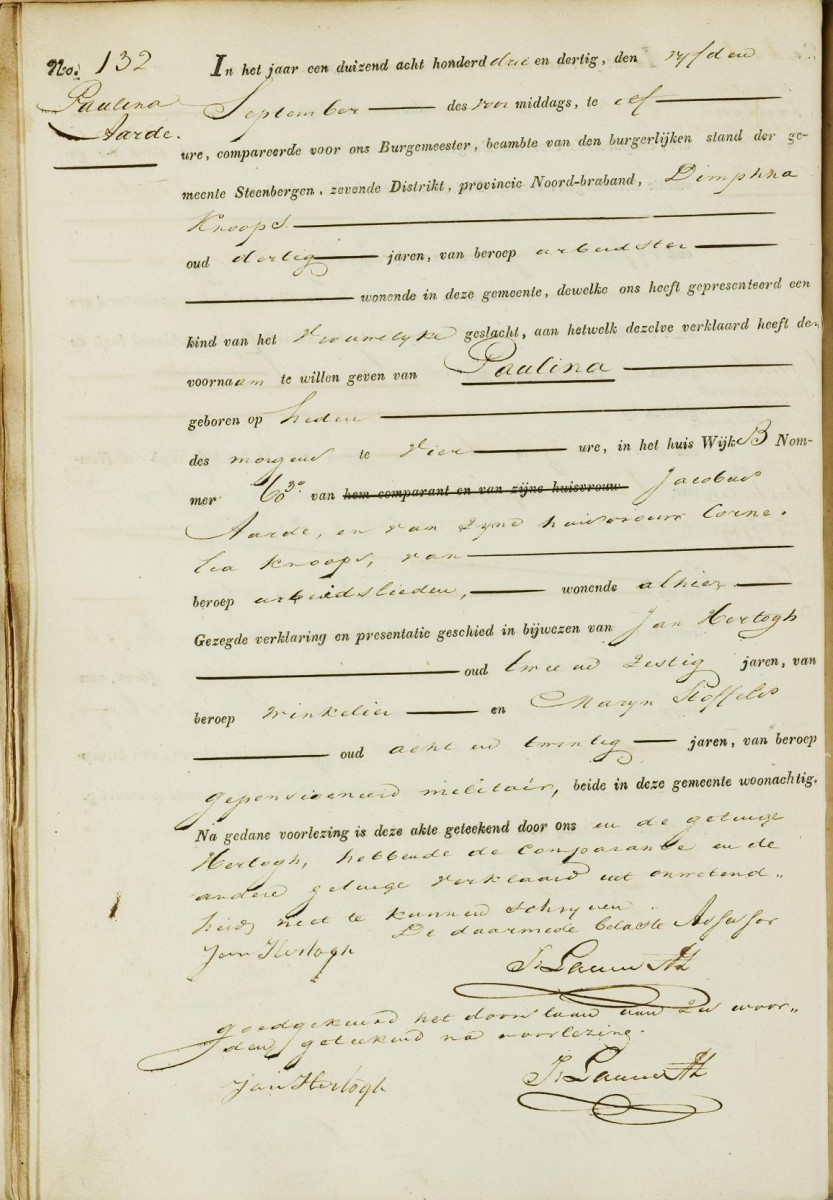 No. 132
Paulina
Aarde.
In het jaar een duizend acht honderd drie en dertig, den vyfden
September des voor middags, te elf
ure, compareerde voor ons Burgemeester, beambte van den burgerlijken stand der ge-
meente Steenbergen, zevende Distrikt, provincie Noord-braband, Dimphna
Knoops.
oud dertig jaren, van beroep arbeidster
wonende in deze gemeente, dewelke ons heeft gepresenteerd een
kind van het vrouwelyke geslacht, aan hetwelk dezelve verklaard heeft den
voornaam te willen geven van Paulina
geboren op heden
des morgens te vier ure, in het huis Wijk B Nom-
mer 60 van hem comparant en van zijne huisvrouw Jacobus
Aarde, en van zyne huisvrouw Corne-
lia Knoops, van
beroep arbeidslieden, wonende alhier.
Gezegde verklaring en presentatie geschied in bijwezen van Jan Hertogh
oud twee en zestig jaren, van
beroep winkelier en Maryn Stoffels
oud acht en twintig jaren, van beroep
gepensioneerd militair, beide in deze gemeente woonachtig.
Na gedane voorlezing is deze akte geteekend door ons en de getuige
Hertogh, hebbende de Comparante en de
andere getuige verklaard uit onwetend-
heid niet te kunnen schryven.
De daarmede belaste Assessor
Jan Hertogh
goedgekeurd het doorslaan van zes woor-
den, geteekend na voorlezing.
Jan Hertogh